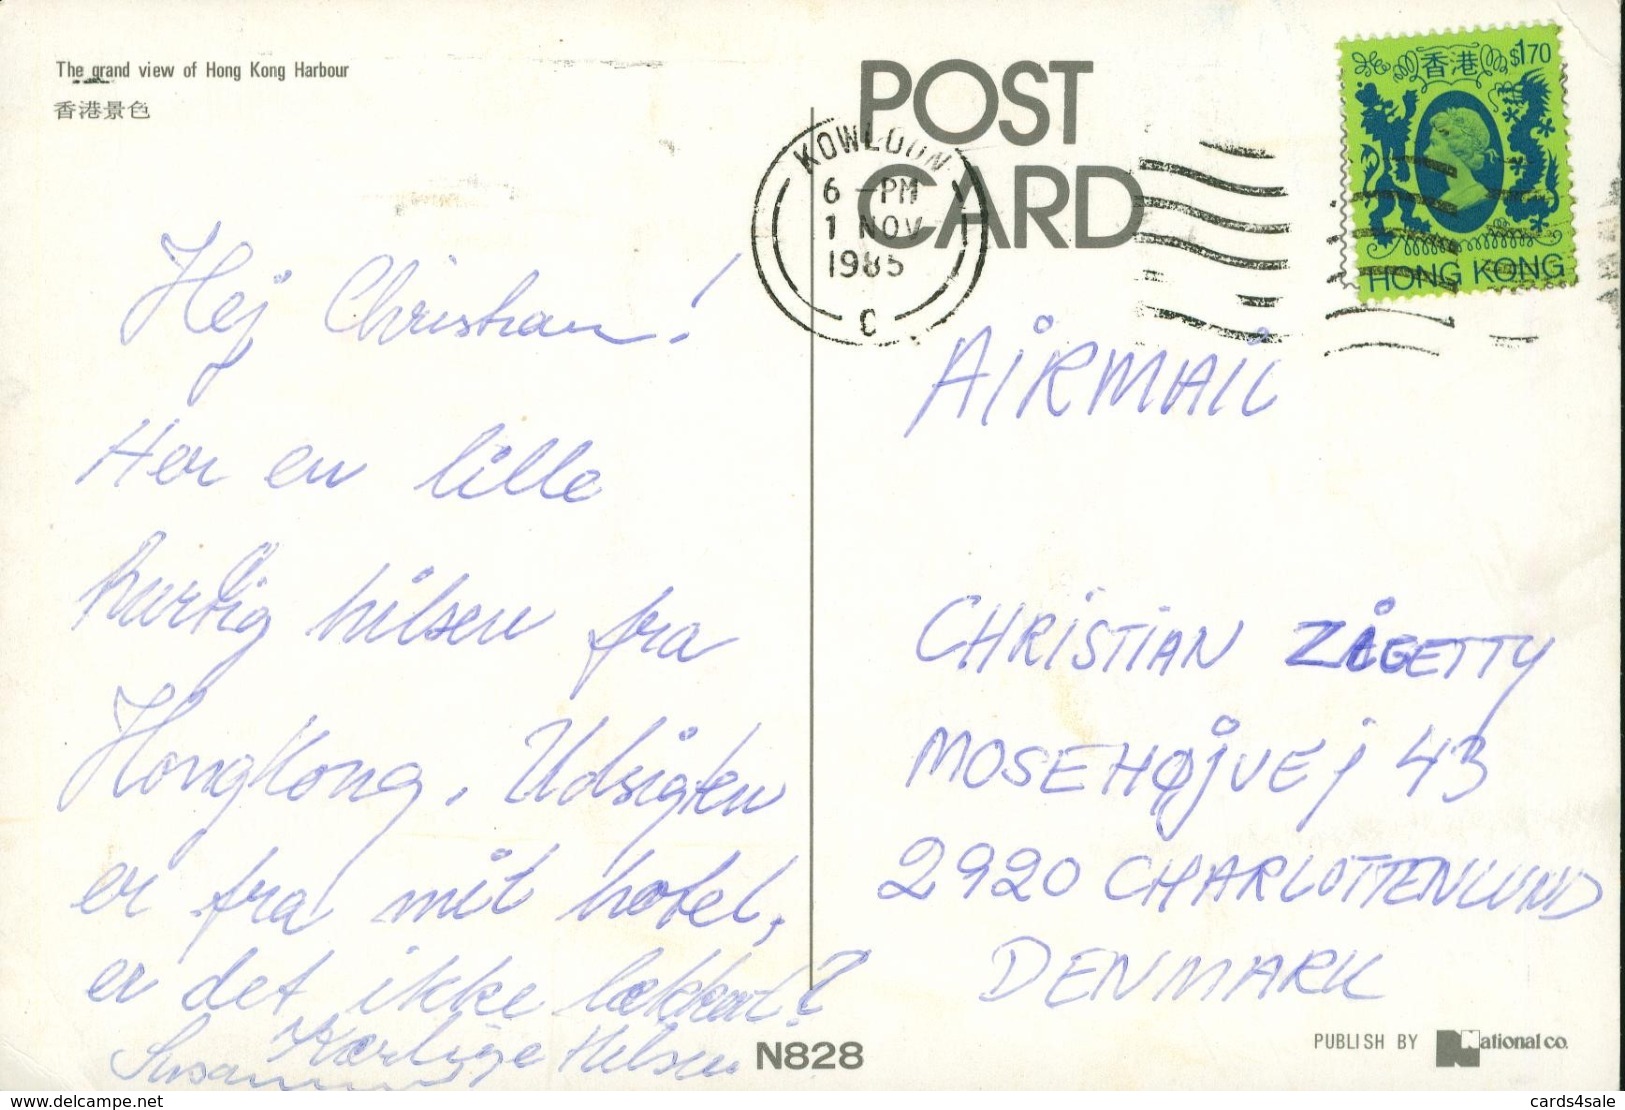 The grand view of Hong Kong Harbour
香港景色
POST
CARD
KOWLOON
6 -PM
1 NOV
1985
C
香港 $1.70
HONG KONG
Hej Christian!
Her en lille
hurtig hilsen fra
HongKong. Udsigten
er fra mit hotel,
er det ikke lækkert?
Kærlige Hilsen
AiRMAiL
CHRiSTiAN ZIGETTY
MOSEHØJVEj 43
2920 CHARLOTTENLUND
DENMARK
N828
PUBLISH BY National co.
www.delcampe.net
cards4sale